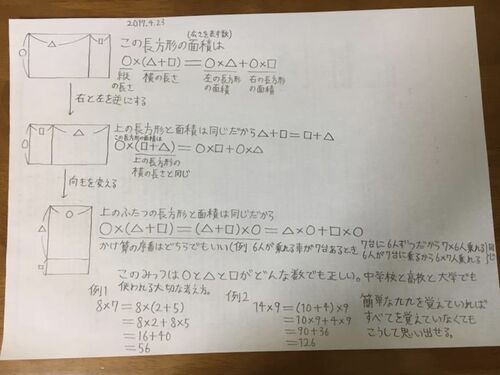 2017.4.23
(右さを表す数)
この長方形の面積は
○×(△+□)=○×△+○×□
縦の長さ 横の長さ 左の長方形の面積 右の長方形の面積
右と左を逆にする
上の長方形と面積は同じだから△+□=□+△
この長方形の面積は
○×(□+△)=○×□+○×△
上の長方形の横の長さと同じ
向きを変える
上のふたつの長方形と面積は同じだから
○×(△+□)=(△+□)×○=△×○+□×○
かけ算の順番はどちらでもいい(例 6人が乗れる車が7台あるとき 7台に6人ずつだから7×6人乗れる
6人が7台に乗るから6×7人乗れる
このみっつは○と△と□がどんな数でも正しい。中学校と高校と大学でも
使われる大切な考え方。
例1
8×7=8×(2+5)
=8×2+8×5
=16+40
=56
例2
14×9=(10+4)×9
=10×9+4×9
=90+36
=126
簡単な九九を覚えていれば
すべてを覚えていなくても
こうして思い出せる。